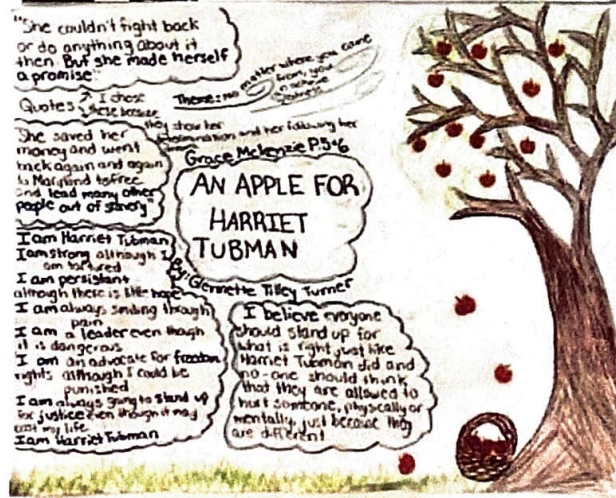 "She couldn't fight back
or do anything about it
then. But she made herself
a promise"
Quotes ↑ I chose
these because
they show her
determination and her following her
Theme: no matter where you came
from, you
can achieve
Grace McKenzie P.5+6
She saved her
money and went
back again and again
to Maryland to free
and lead many other
people out of slavery"
AN APPLE FOR
HARRIET
TUBMAN
By: Glennette Tilley Turner
I am Harriet Tubman
I am strong although I
am tortured
I am persistant
although there is little hope
I am always smiling through
pain
I am a leader even though
it is dangerous
I am an advocate for freedom
rights although I could be
punished
I am always going to stand up
for justice even though it may
cost my life
I am Harriet Tubman
I believe everyone
should stand up for
what is right just like
Harriet Tubman did and
no-one should think
that they are allowed to
hurt someone, physically or
mentally, just because they
are different